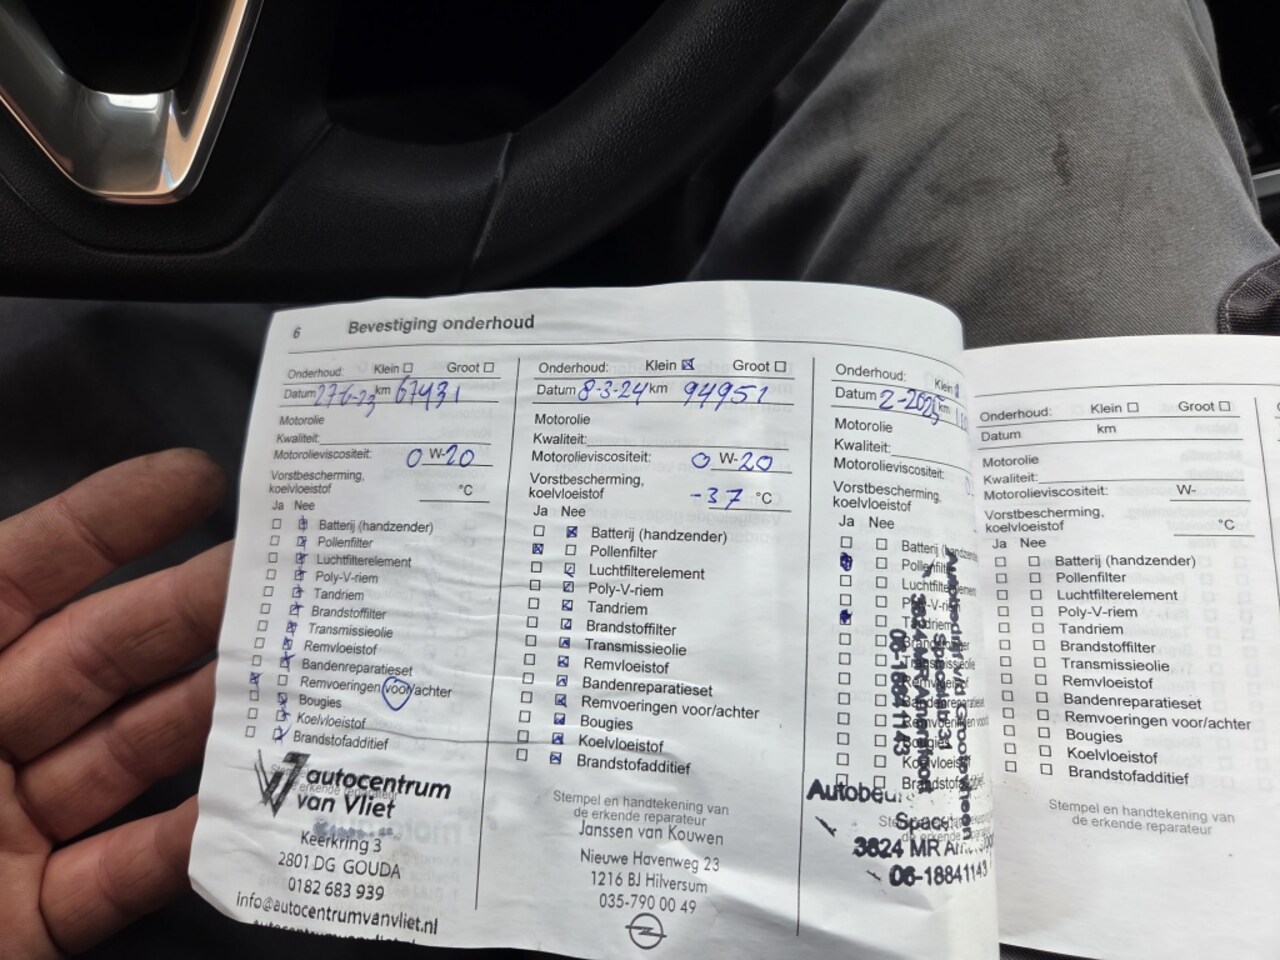 6 Bevestiging onderhoud
Onderhoud: Klein Groot
Datum 27-6-23 km 67431
Motorolie
Kwaliteit:
Motorolieviscositeit: 0 W-20
Vorstbescherming,
koelvloeistof °C
Ja Nee
Batterij (handzender)
Pollenfilter
Luchtfilterelement
Poly-V-riem
Tandriem
Brandstoffilter
Transmissieolie
Remvloeistof
Bandenreparatieset
Remvoeringen voor/achter
Bougies
Koelvloeistof
Brandstofadditief
autocentrum
van Vliet
Keerkring 3
2801 DG GOUDA
0182 683 939
info@autocentrumvanvliet.nl
Onderhoud: Klein Groot
Datum 8-3-24 km 94951
Motorolie
Kwaliteit:
Motorolieviscositeit: 0 W-20
Vorstbescherming,
koelvloeistof -37 °C
Ja Nee
Batterij (handzender)
Pollenfilter
Luchtfilterelement
Poly-V-riem
Tandriem
Brandstoffilter
Transmissieolie
Remvloeistof
Bandenreparatieset
Remvoeringen voor/achter
Bougies
Koelvloeistof
Brandstofadditief
Stempel en handtekening van
de erkende reparateur
Janssen van Kouwen
Nieuwe Havenweg 23
1216 BJ Hilversum
035-790 00 49
Onderhoud: Klein
Datum 2-2025 km
Motorolie
Kwaliteit:
Motorolieviscositeit:
Vorstbescherming,
koelvloeistof
Ja Nee
Batterij
Tandriem
3824 MR Amersfoort
06-18841143
3824 MR
06-18841143
Onderhoud: Klein Groot
Datum km
Motorolie
Kwaliteit:
Motorolieviscositeit: W-
Vorstbescherming,
koelvloeistof °C
Ja Nee
Batterij (handzender)
Pollenfilter
Luchtfilterelement
Poly-V-riem
Tandriem
Brandstoffilter
Transmissieolie
Remvloeistof
Bandenreparatieset
Remvoeringen voor/achter
Bougies
Koelvloeistof
Brandstofadditief
Stempel en handtekening van
de erkende reparateur